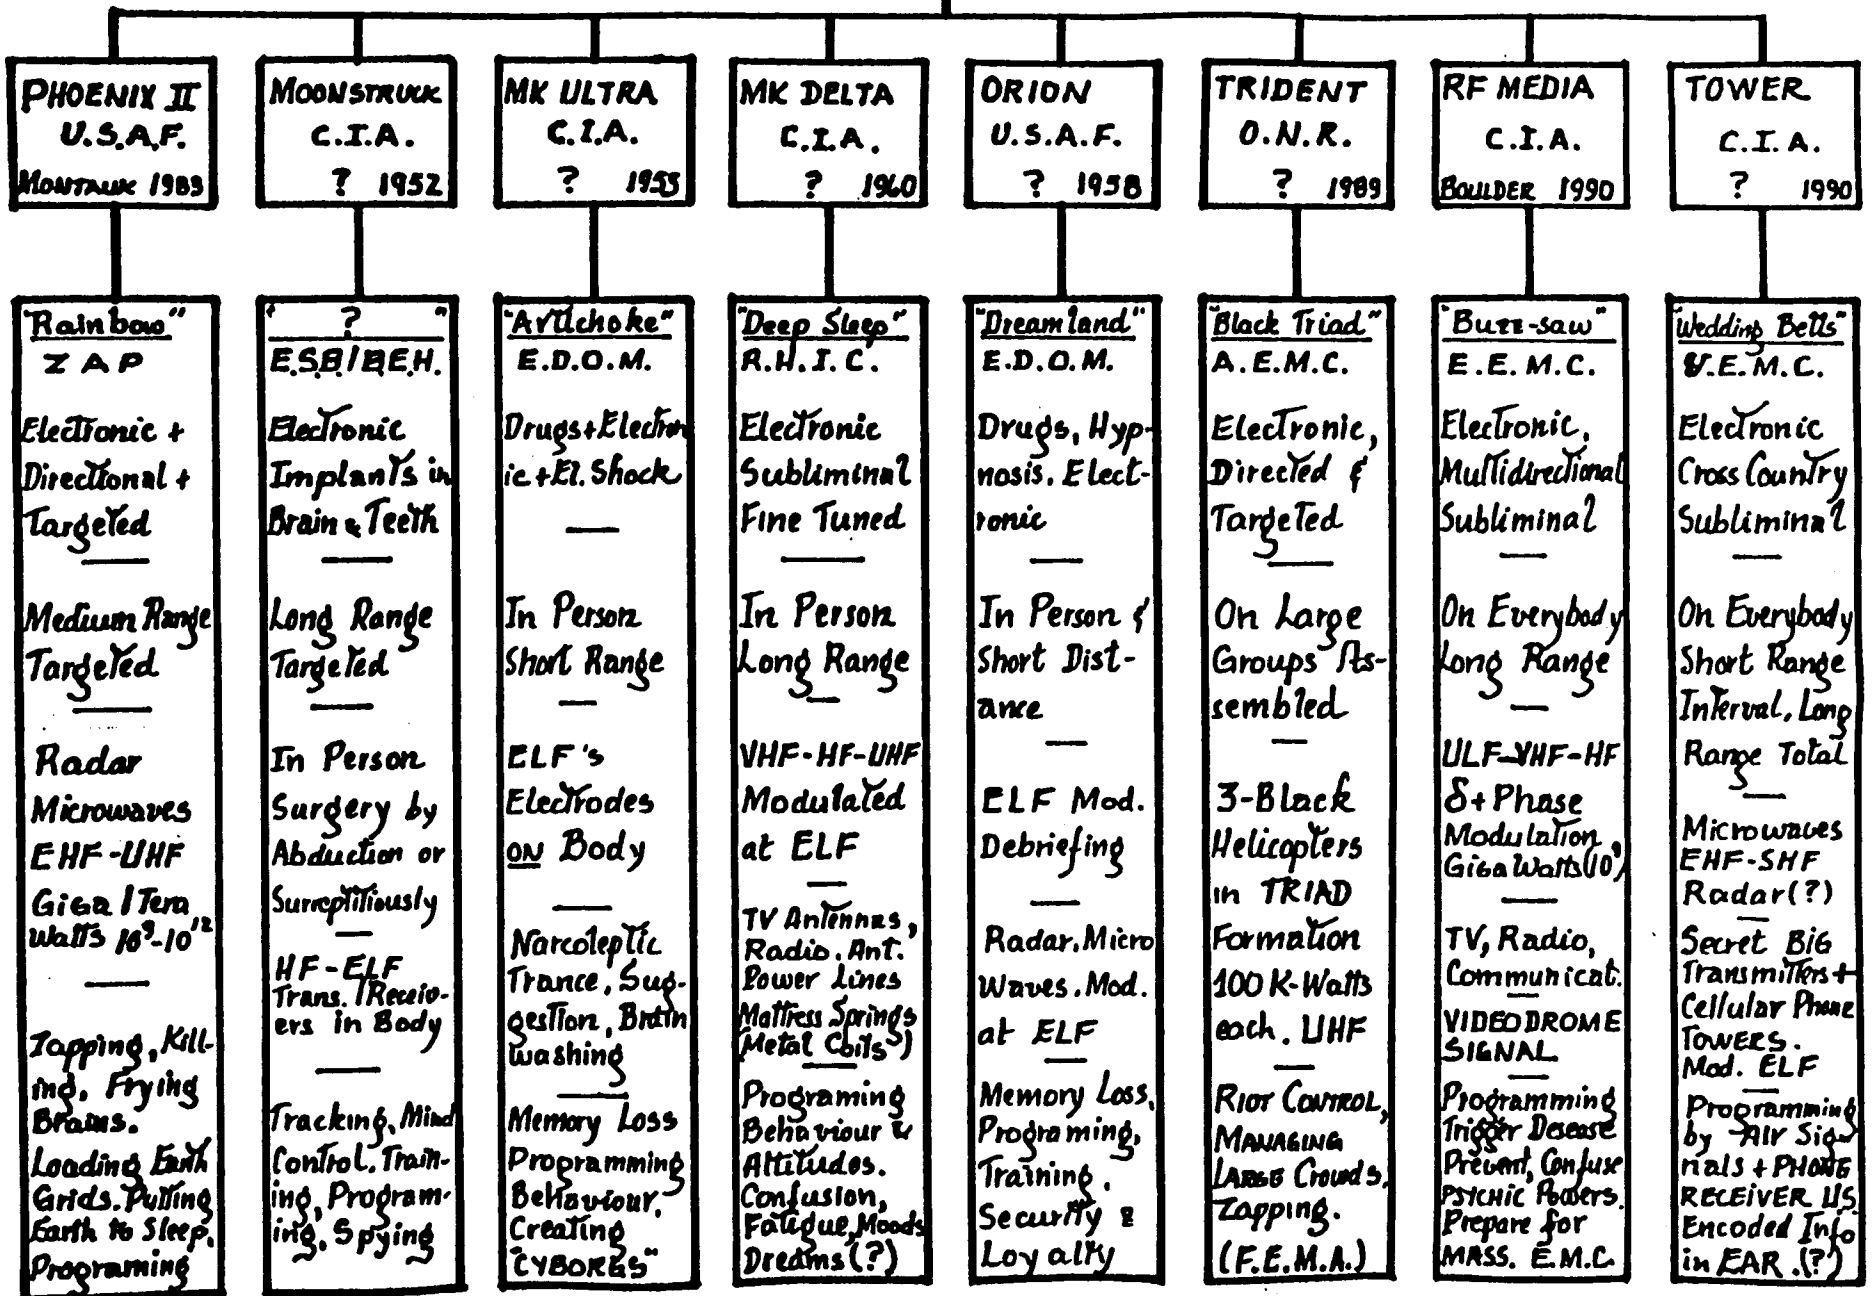 PHOENIX II
U.S.A.F.
MONTAUK 1983
"Rainbow"
ZAP
Electronic +
Directional +
Targeted
Medium Range
Targeted
Radar
Microwaves
EHF-UHF
Giga / Tera
Watts 10⁹-10¹²
Zapping, Kill-
ing, Frying
Brains.
Loading Earth
Grids. Putting
Earth to Sleep.
Programing
MOONSTRUCK
C.I.A.
? 1952
" ? "
E.S.B./B.E.H.
Electronic
Implants in
Brain & Teeth
Long Range
Targeted
In Person
Surgery by
Abduction or
Surreptitiously
HF-ELF
Trans. / Receiv-
ers in Body
Tracking, Mind
Control, Train-
ing, Program-
ing, Spying
MK ULTRA
C.I.A.
? 1953
"Artichoke"
E.D.O.M.
Drugs+Electron
ic+El. Shock
In Person
Short Range
ELF's
Electrodes
ON Body
Narcoleptic
Trance, Sug-
gestion, Brain
washing
Memory Loss
Programming
Behaviour,
Creating
"CYBORGS"
MK DELTA
C.I.A.
? 1960
"Deep Sleep"
R.H.I.C.
Electronic
Subliminal
Fine Tuned
In Person
Long Range
VHF-HF-UHF
Modulated
at ELF
TV Antennas,
Radio. Ant.
Power Lines
Mattress Springs
(Metal Coils)
Programing
Behaviour &
Attitudes.
Confusion,
Fatigue, Moods
Dreams(?)
ORION
U.S.A.F.
? 1958
"Dreamland"
E.D.O.M.
Drugs, Hyp-
nosis. Elect-
ronic
In Person &
Short Dist-
ance
ELF Mod.
Debriefing
Radar. Micro
Waves. Mod.
at ELF
Memory Loss,
Programing,
Training,
Security &
Loyalty
TRIDENT
O.N.R.
? 1989
"Black Triad"
A.E.M.C.
Electronic,
Directed &
Targeted
On Large
Groups As-
sembled
3-Black
Helicopters
in TRIAD
Formation
100 K-Watts
each. UHF
RIOT CONTROL,
MANAGING
LARGE Crowds.
Zapping.
(F.E.M.A.)
RF MEDIA
C.I.A.
BOULDER 1990
"Buzz-saw"
E.E.M.C.
Electronic,
Multidirectional
Subliminal
On Everybody
Long Range
ULF-VHF-HF
δ+Phase
Modulation,
GigaWatts(10⁹)
TV, Radio,
Communicat.
VIDEODROME
SIGNAL
Programming
Trigger Desease
Prevent, Confuse
PSYCHIC Powers.
Prepare for
MASS. E.M.C.
TOWER
C.I.A.
? 1990
"Wedding Bells"
V.E.M.C.
Electronic
Cross Country
Subliminal
On Everybody
Short Range
Interval, Long
Range Total
Microwaves
EHF-SHF
Radar(?)
Secret BiG
Transmitters+
Cellular Phone
TOWERS.
Mod. ELF
Programming
by Air Sig-
nals + PHONE
RECEIVER US
Encoded Info
in EAR .(?)